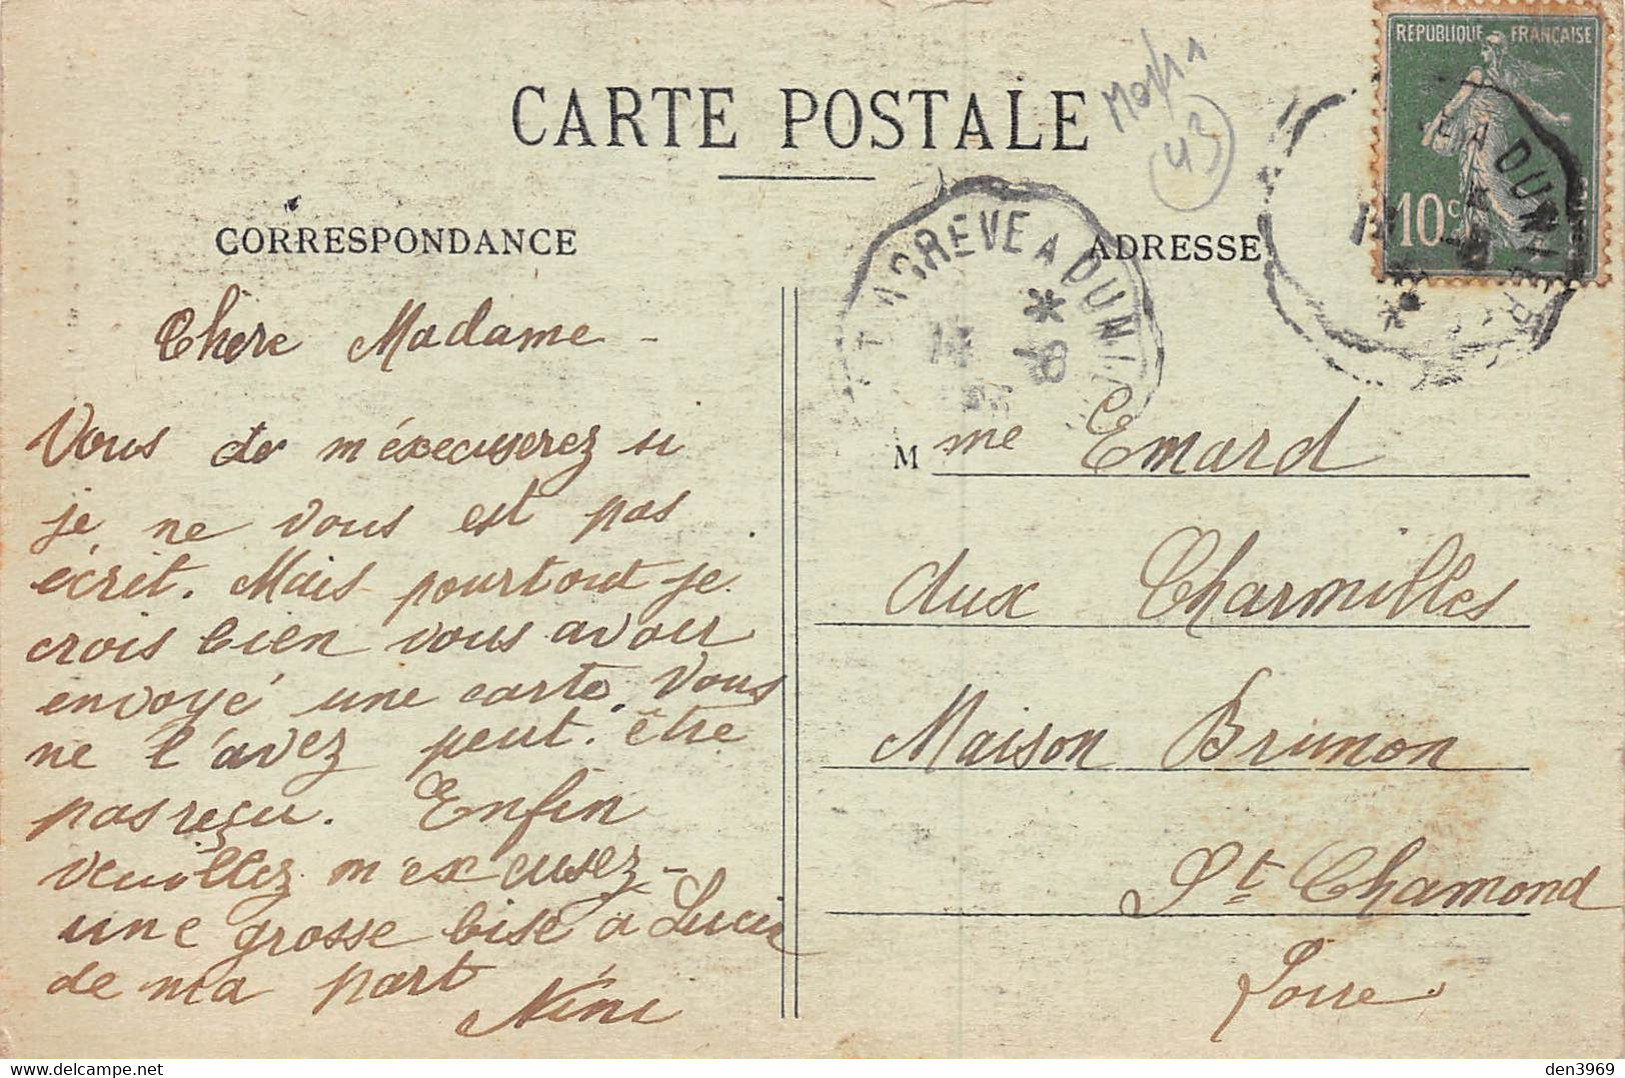 CARTE POSTALE
CORRESPONDANCE
ADRESSE
REPUBLIQUE FRANÇAISE
10c
43
Chère Madame -
Vous de m'éxecuserez si
je ne vous est pas
écrit. Mais pourtout je
crois bien vous avoir
envoyé une carte. Vous
ne l'avez peut. être
pas reçu. Enfin
veuillez m'excusez -
une grosse bise a Lucie
de ma part
Nini
Mme Emard
aux Charmilles
Maison Brunon
St Chamond
Loire
den3969